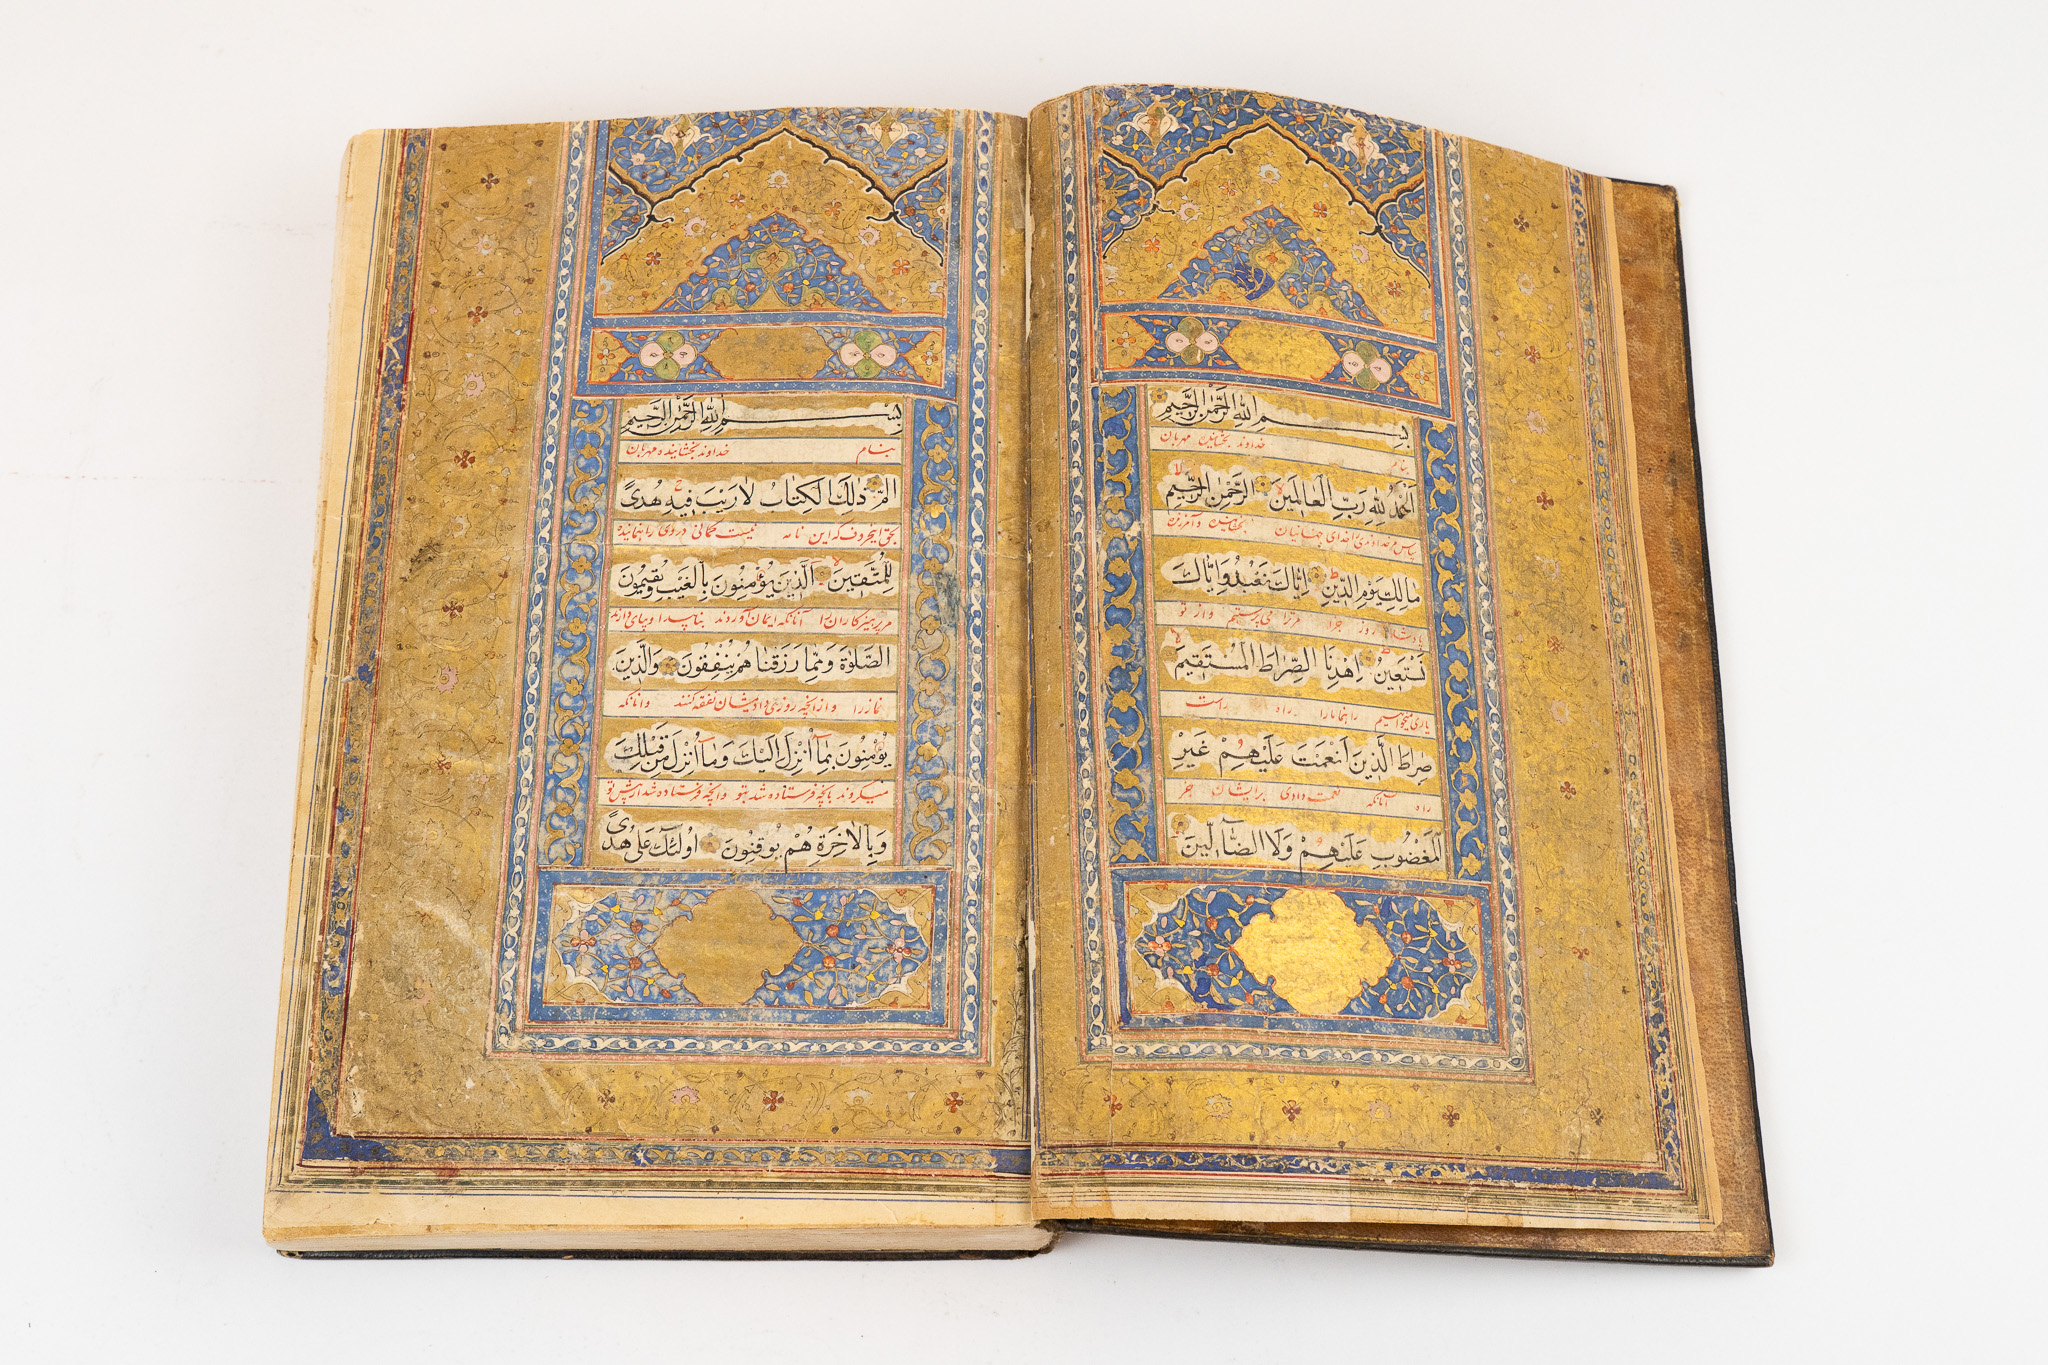 بِسْمِ اللهِ الرَّحْمٰنِ الرَّحِيمِ
بنام خداوند بخشاینده مهربان
اَلْحَمْدُ لِلّٰهِ رَبِّ الْعَالَمِينَ الرَّحْمٰنِ الرَّحِيمِ
سپاس مر خدایرا خدای جهانیان بخشاینده
مَالِكِ يَوْمِ الدِّينِ اِيَّاكَ نَعْبُدُ وَاِيَّاكَ
پادشاه روز جزا مرترا می پرستیم و از تو
نَسْتَعِينُ اِهْدِنَا الصِّرَاطَ الْمُسْتَقِيمَ
یاری میخواهیم راهنما مارا راه راست
صِرَاطَ الَّذِينَ اَنْعَمْتَ عَلَيْهِمْ غَيْرِ
راه آنانکه نعمت دادی برایشان جز
الْمَغْضُوبِ عَلَيْهِمْ وَلَا الضَّآلِّينَ
بِسْمِ اللهِ الرَّحْمٰنِ الرَّحِيمِ
بنام خداوند بخشاینده مهربان
الم ذٰلِكَ الْكِتَابُ لَا رَيْبَ فِيهِ هُدًى
بحق این حروف که این نامه نیست گمانی در وی راه نماینده
لِلْمُتَّقِينَ الَّذِينَ يُؤْمِنُونَ بِالْغَيْبِ وَيُقِيمُونَ
مر پرهیزکاران را آنانکه ایمان آوردند بناپیدا و بپای دارند
الصَّلٰوةَ وَمِمَّا رَزَقْنَا هُمْ يُنْفِقُونَ وَالَّذِينَ
نماز را و از آنچه روزی دادیمشان نفقه کنند و آنانکه
يُؤْمِنُونَ بِمَآ اُنْزِلَ اِلَيْكَ وَمَآ اُنْزِلَ مِنْ قَبْلِكَ
میگروند بآنچه فرستاده شد بتو و آنچه فرستاده شد از پیش تو
وَبِالْاٰخِرَةِ هُمْ يُوقِنُونَ اُولٰئِكَ عَلٰى هُدًى